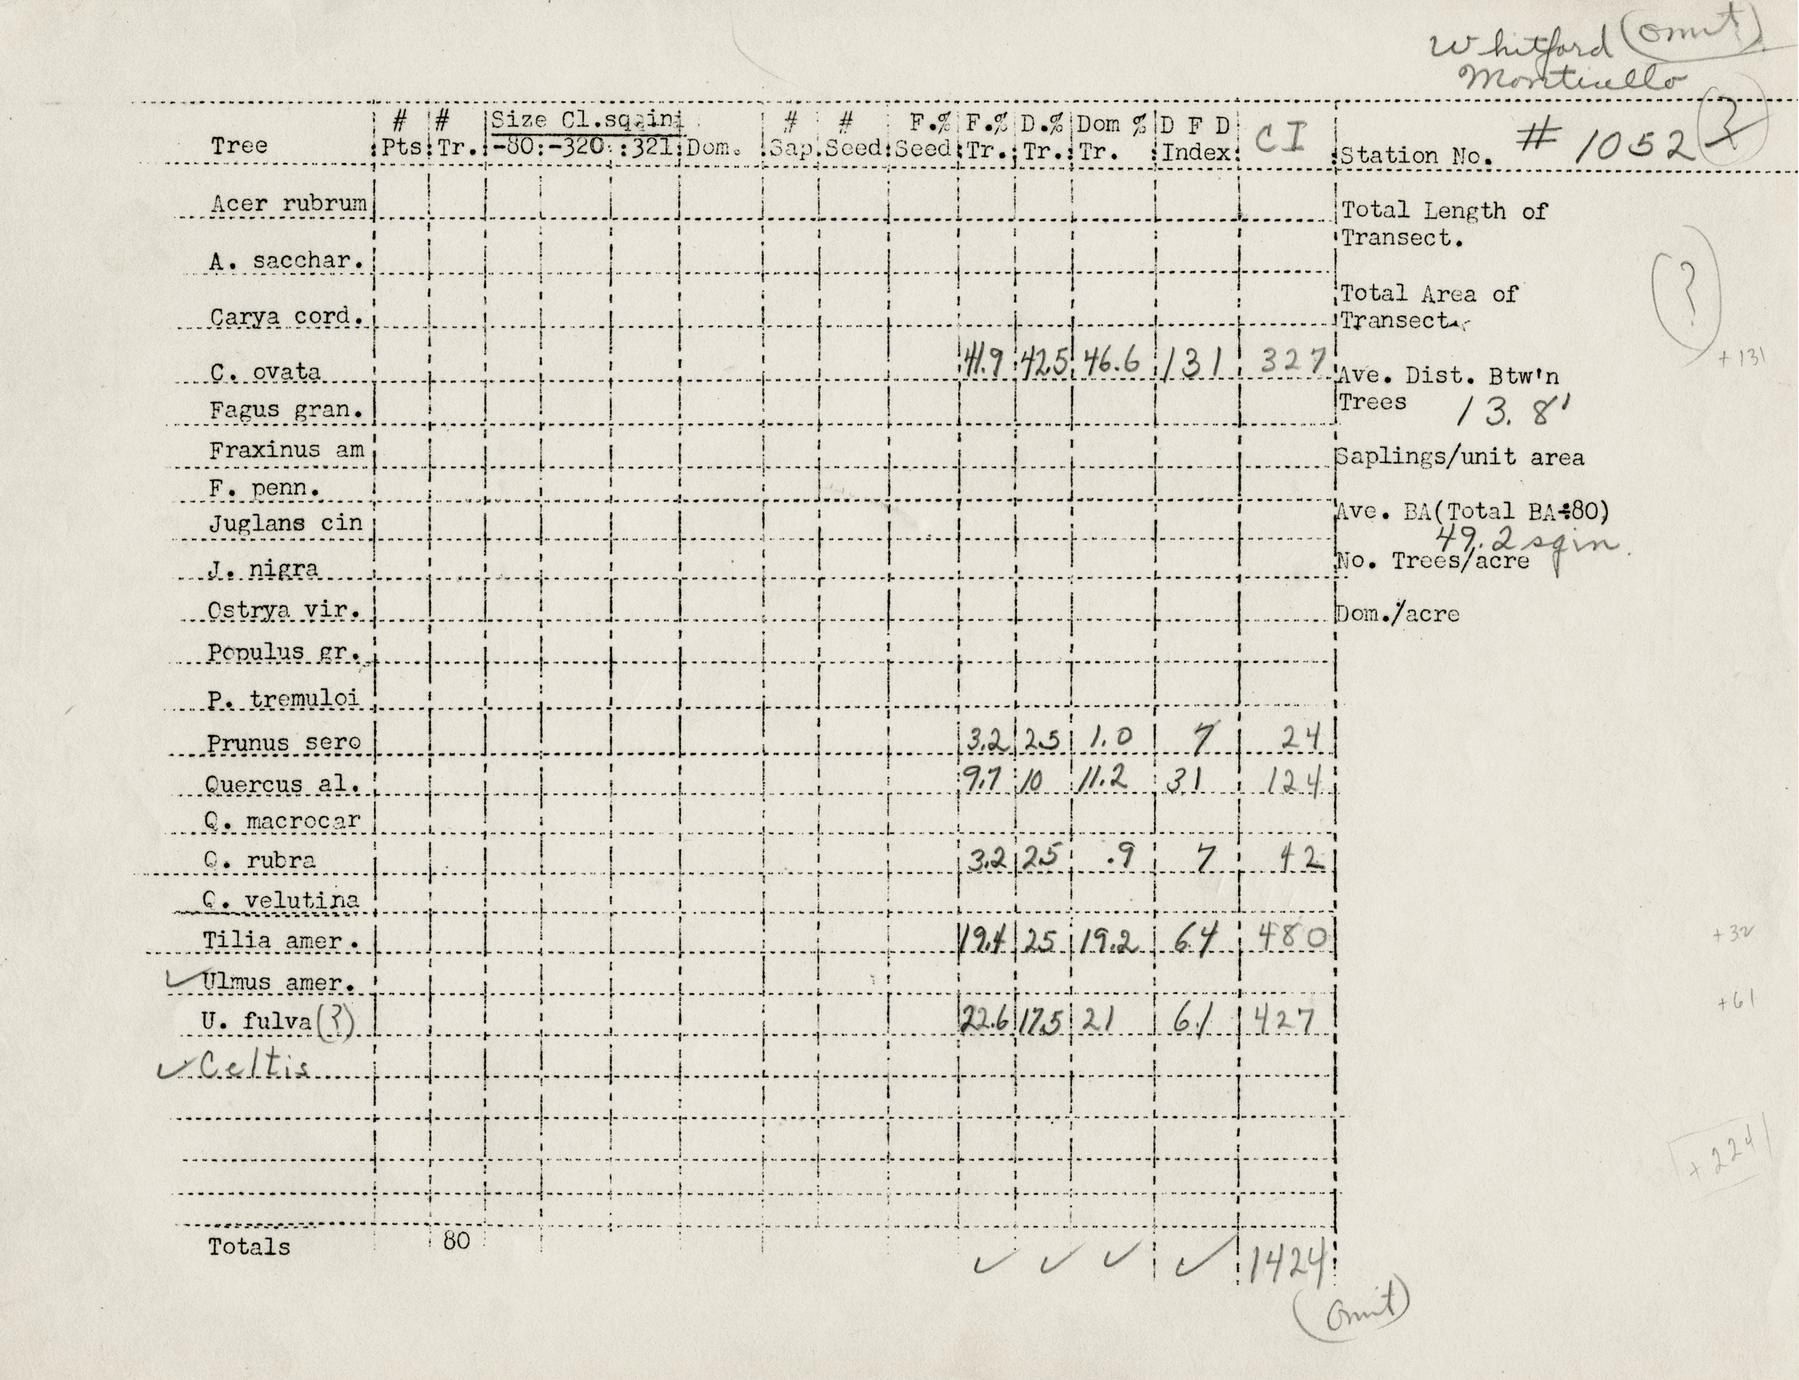 Whitford (omit)
Monticello
Tree # Pts # Tr. Size Cl.sq.in -80:-320::321 Dom. # Sap. # Seed F.% Seed F.% Tr. D.% Tr. Dom % Tr. D F D Index CI Station No. # 1052 ?
Acer rubrum
Total Length of
Transect.
A. sacchar.
Total Area of
Transect.
(?)
Carya cord.
+131
C. ovata 41.9 42.5 46.6 131 327
Ave. Dist. Btw'n
Trees 13.8'
Fagus gran.
Fraxinus am
Saplings/unit area
F. penn.
Juglans cin
Ave. BA(Total BA÷80)
49.2 sq in.
J. nigra
No. Trees/acre
Ostrya vir.
Dom./acre
Populus gr.
P. tremuloi
Prunus sero 3.2 2.5 1.0 7 24
Quercus al. 9.7 10 11.2 31 124
Q. macrocar
Q. rubra 3.2 2.5 .9 7 42
Q. velutina
Tilia amer. 19.4 25 19.2 64 480
+32
✓ Ulmus amer.
+61
U. fulva(?) 22.6 17.5 21 61 427
✓ Celtis
+224
Totals 80 ✓ ✓ ✓ ✓ 1424
(omit)